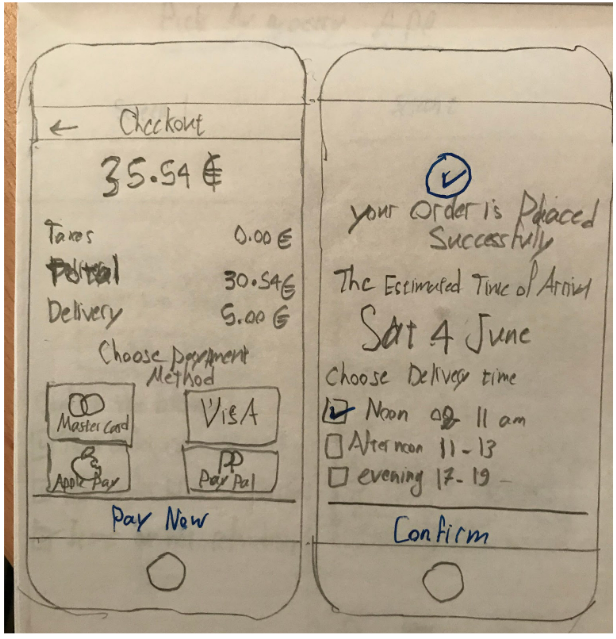 ← Checkout
35.54 €
Taxes 0.00 €
30.54 €
Delivery 5.00 €
Choose payment
Method
Master Card
VISA
Apple Pay
PP
Pay Pal
Pay Now
your order is Placed
Successfully
The Estimated Time of Arrival
Sat 4 June
Choose Delivery time
Noon 11 am
Afternoon 11-13
evening 17-19
Confirm